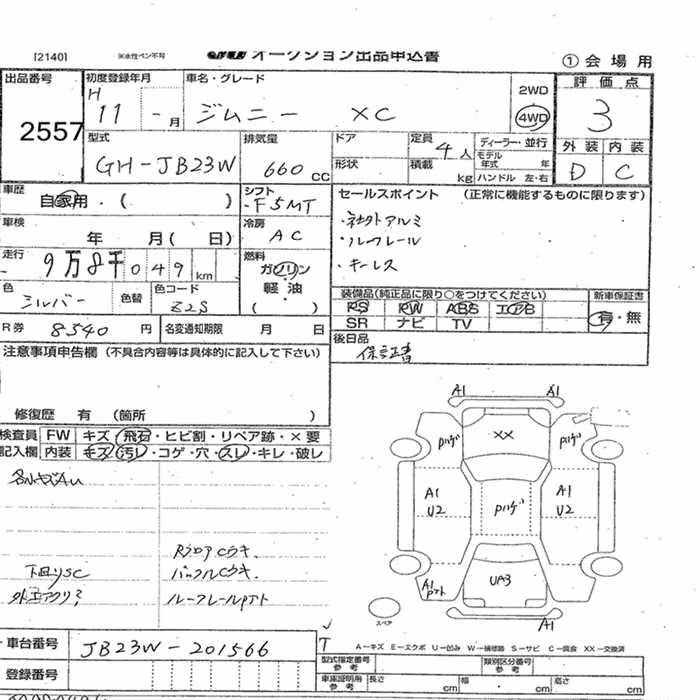 [2140]
※水性ペン不可
オークション出品申込書
①会場用
出品番号
2557
初度登録年月
H 11 - 月
車名・グレード
ジムニー XC
2WD
4WD
評価点
3
型式
GH-JB23W
排気量
660 CC
ドア
形状
定員
4 人
積載
kg
ディーラー・並行
モデル年式 年
ハンドル 左・右
外装
内装
D
C
車歴
自家用・( )
シフト
F5MT
セールスポイント (正常に機能するものに限ります)
・社外アルミ
・ルーフレール
・キーレス
車検
年 月( 日)
冷房
AC
走行
9万8千049 km
燃料
ガソリン
軽・油
( )
色
シルバー
色替
色コード
Z2S
装備品(純正品に限り○をつけてください)
新車保証書
PS PW ABS エアB
SR ナビ TV
有・無
R券 8540 円
名変通知期限 月 日
後日品
保証書
注意事項申告欄 (不具合内容等は具体的に記入して下さい)
修復歴 有 (箇所 )
検査員
記入欄
FW キズ・飛石・ヒビ割・リペア跡・×要
内装 キズ・汚レ・コゲ・穴・スレ・キレ・破レ
各小キズAU
RフロアCウキ.
下回りSC
マフラーCウキ.
ルーフレールPアト
A1
A1
Pハゲ
XX
Pハゲ
A1
U2
Pハゲ
A1
U2
A1
Pアト
UA3
A1
スペア
A-キズ E-エクボ U-凹み W-補修跡 S-サビ C-腐食 XX-交換済
車台番号
JB23W-201566
登録番号
型式指定番号
参考
類別区分番号
参考
車庫証明用
参考
長さ cm
幅 cm
高さ cm